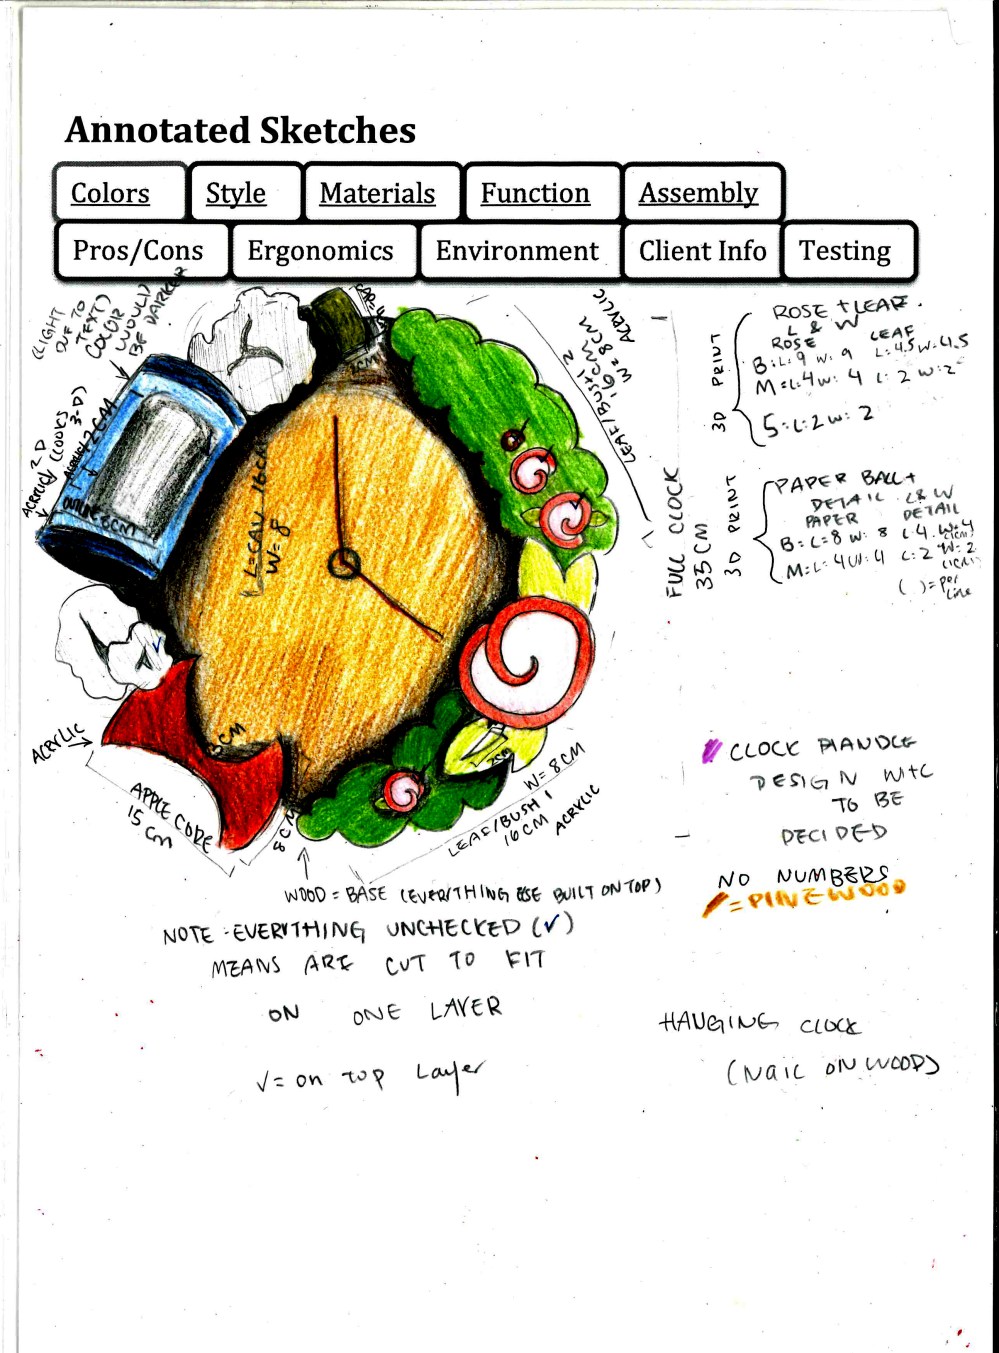 Annotated Sketches
Colors
Style
Materials
Function
Assembly
Pros/Cons
Ergonomics
Environment
Client Info
Testing
(LIGHT
DUE TO
TEXT)
COLOR
WOULD
BE DARKER
ACRYLIC
W=8CM
16CM
LEAF/BUSH 2
ACRYLIC 2D
(LOOKS
3-D)
W=8
FULL CLOCK
35CM
3D PRINT
ROSE + LEAF
L & W
ROSE LEAF
B: L: 9 W: 9 L: 4.5 W: 4.5
M: L: 4 W: 4 L: 2 W: 2
S: L: 2 W: 2
3D PRINT
PAPER BALL +
DETAIL L & W
PAPER DETAIL
B: L=8 W: 8 L: 4 W=4
(1CM)
M: L: 4 W: 4 L: 2 W=2
(1CM)
( ) = per
line
ACRYLIC
3CM
APPLE CORE
15 cm
8CM
2CM
W=8CM
LEAF/BUSH 1
16CM
ACRYLIC
CLOCK HANDLE
DESIGN
TO BE
DECIDED
NO NUMBERS
= PINEWOOD
WOOD = BASE (EVERYTHING ELSE BUILT ON TOP)
NOTE - EVERYTHING UNCHECKED (✓)
MEANS ARE CUT TO FIT
ON ONE LAYER
✓ = on top Layer
HANGING CLOCK
(NAIL ON WOOD)